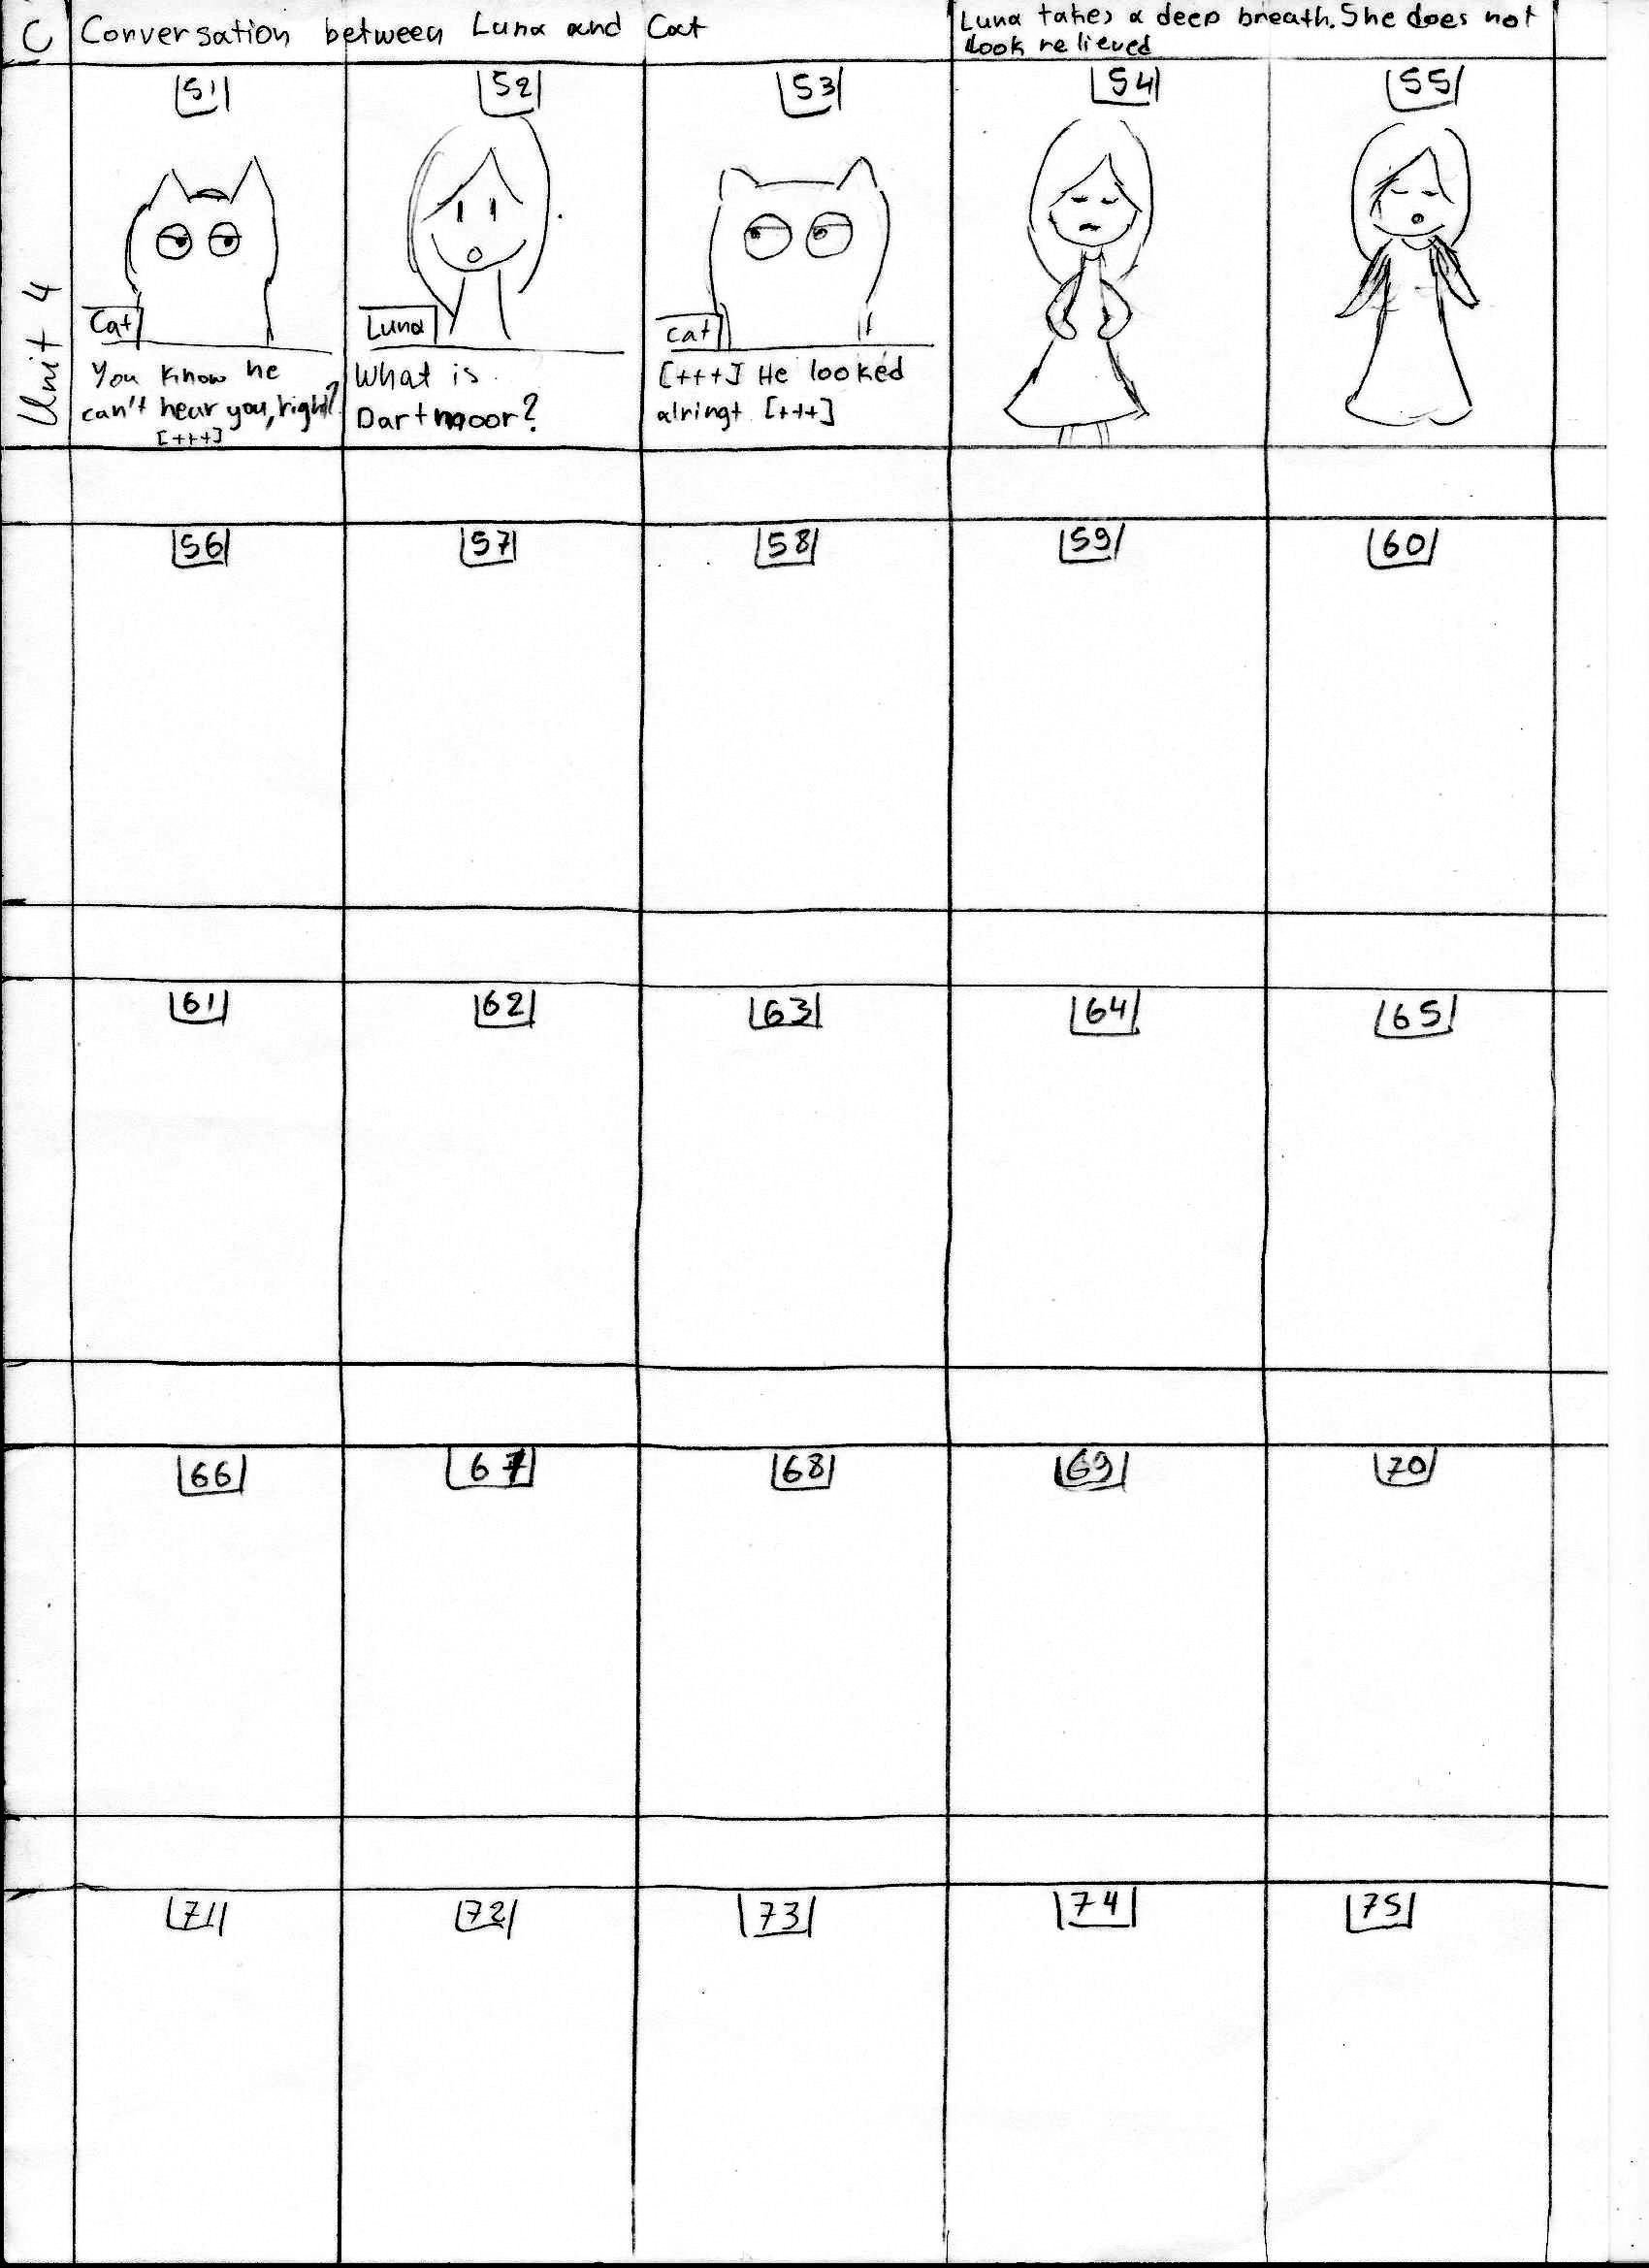 C
Conversation between Luna and Cat
Luna takes a deep breath. She does not
look relieved
Unit 4
51
52
53
54
55
Cat
You know he
can't hear you, right?
[+++]
Luna
What is
Dartmoor?
Cat
[+++] He looked
alringt [+++]
56
57
58
59
60
61
62
63
64
65
66
67
68
69
70
71
72
73
74
75